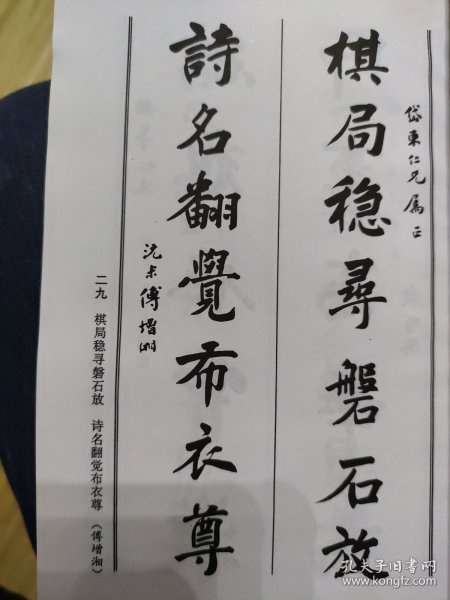 岱東仁兄属正
棋局稳尋磐石放
詩名翻覺布衣尊
沅尗傅增湘
二九　棋局稳寻磐石放　诗名翻觉布衣尊　（傅增湘）
孔夫子旧书网
www.kongfz.com